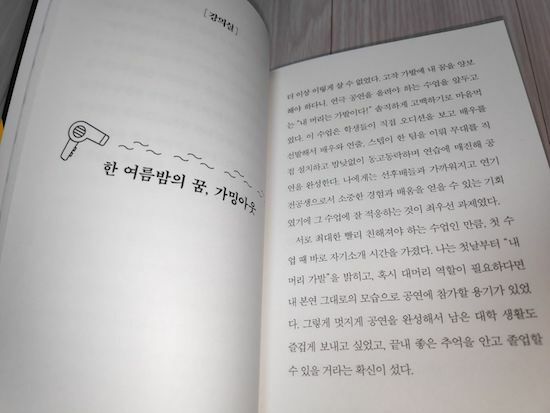 [ 강의실 ]
한 여름밤의 꿈, 가밍아웃
더 이상 이렇게 살 수 없었다. 고작 가발에 내 꿈을 양보
해야 하다니. 연극 공연을 올려야 하는 수업을 앞두고
는 “내 머리는 가발이다!” 솔직하게 고백하기로 마음먹
었다. 이 수업은 학생들이 직접 오디션을 보고 배우를
선발해서 배우와 연출, 스텝이 한 팀을 이뤄 무대를 직
접 설치하고 밤낮없이 동고동락하며 연습에 매진해 공
연을 완성한다. 나에게는 선후배들과 가까워지고 연기
전공생으로서 소중한 경험과 배움을 얻을 수 있는 기회
였기에 그 수업에 잘 적응하는 것이 최우선 과제였다.
서로 최대한 빨리 친해져야 하는 수업인 만큼, 첫 수
업 때 바로 자기소개 시간을 가졌다. 나는 첫날부터 “내
머리 가발”을 밝히고, 혹시 대머리 역할이 필요하다면
내 본연 그대로의 모습으로 공연에 참가할 용기가 있었
다. 그렇게 멋지게 공연을 완성해서 남은 대학 생활도
즐겁게 보내고 싶었고, 끝내 좋은 추억을 안고 졸업할
수 있을 거라는 확신이 섰다.